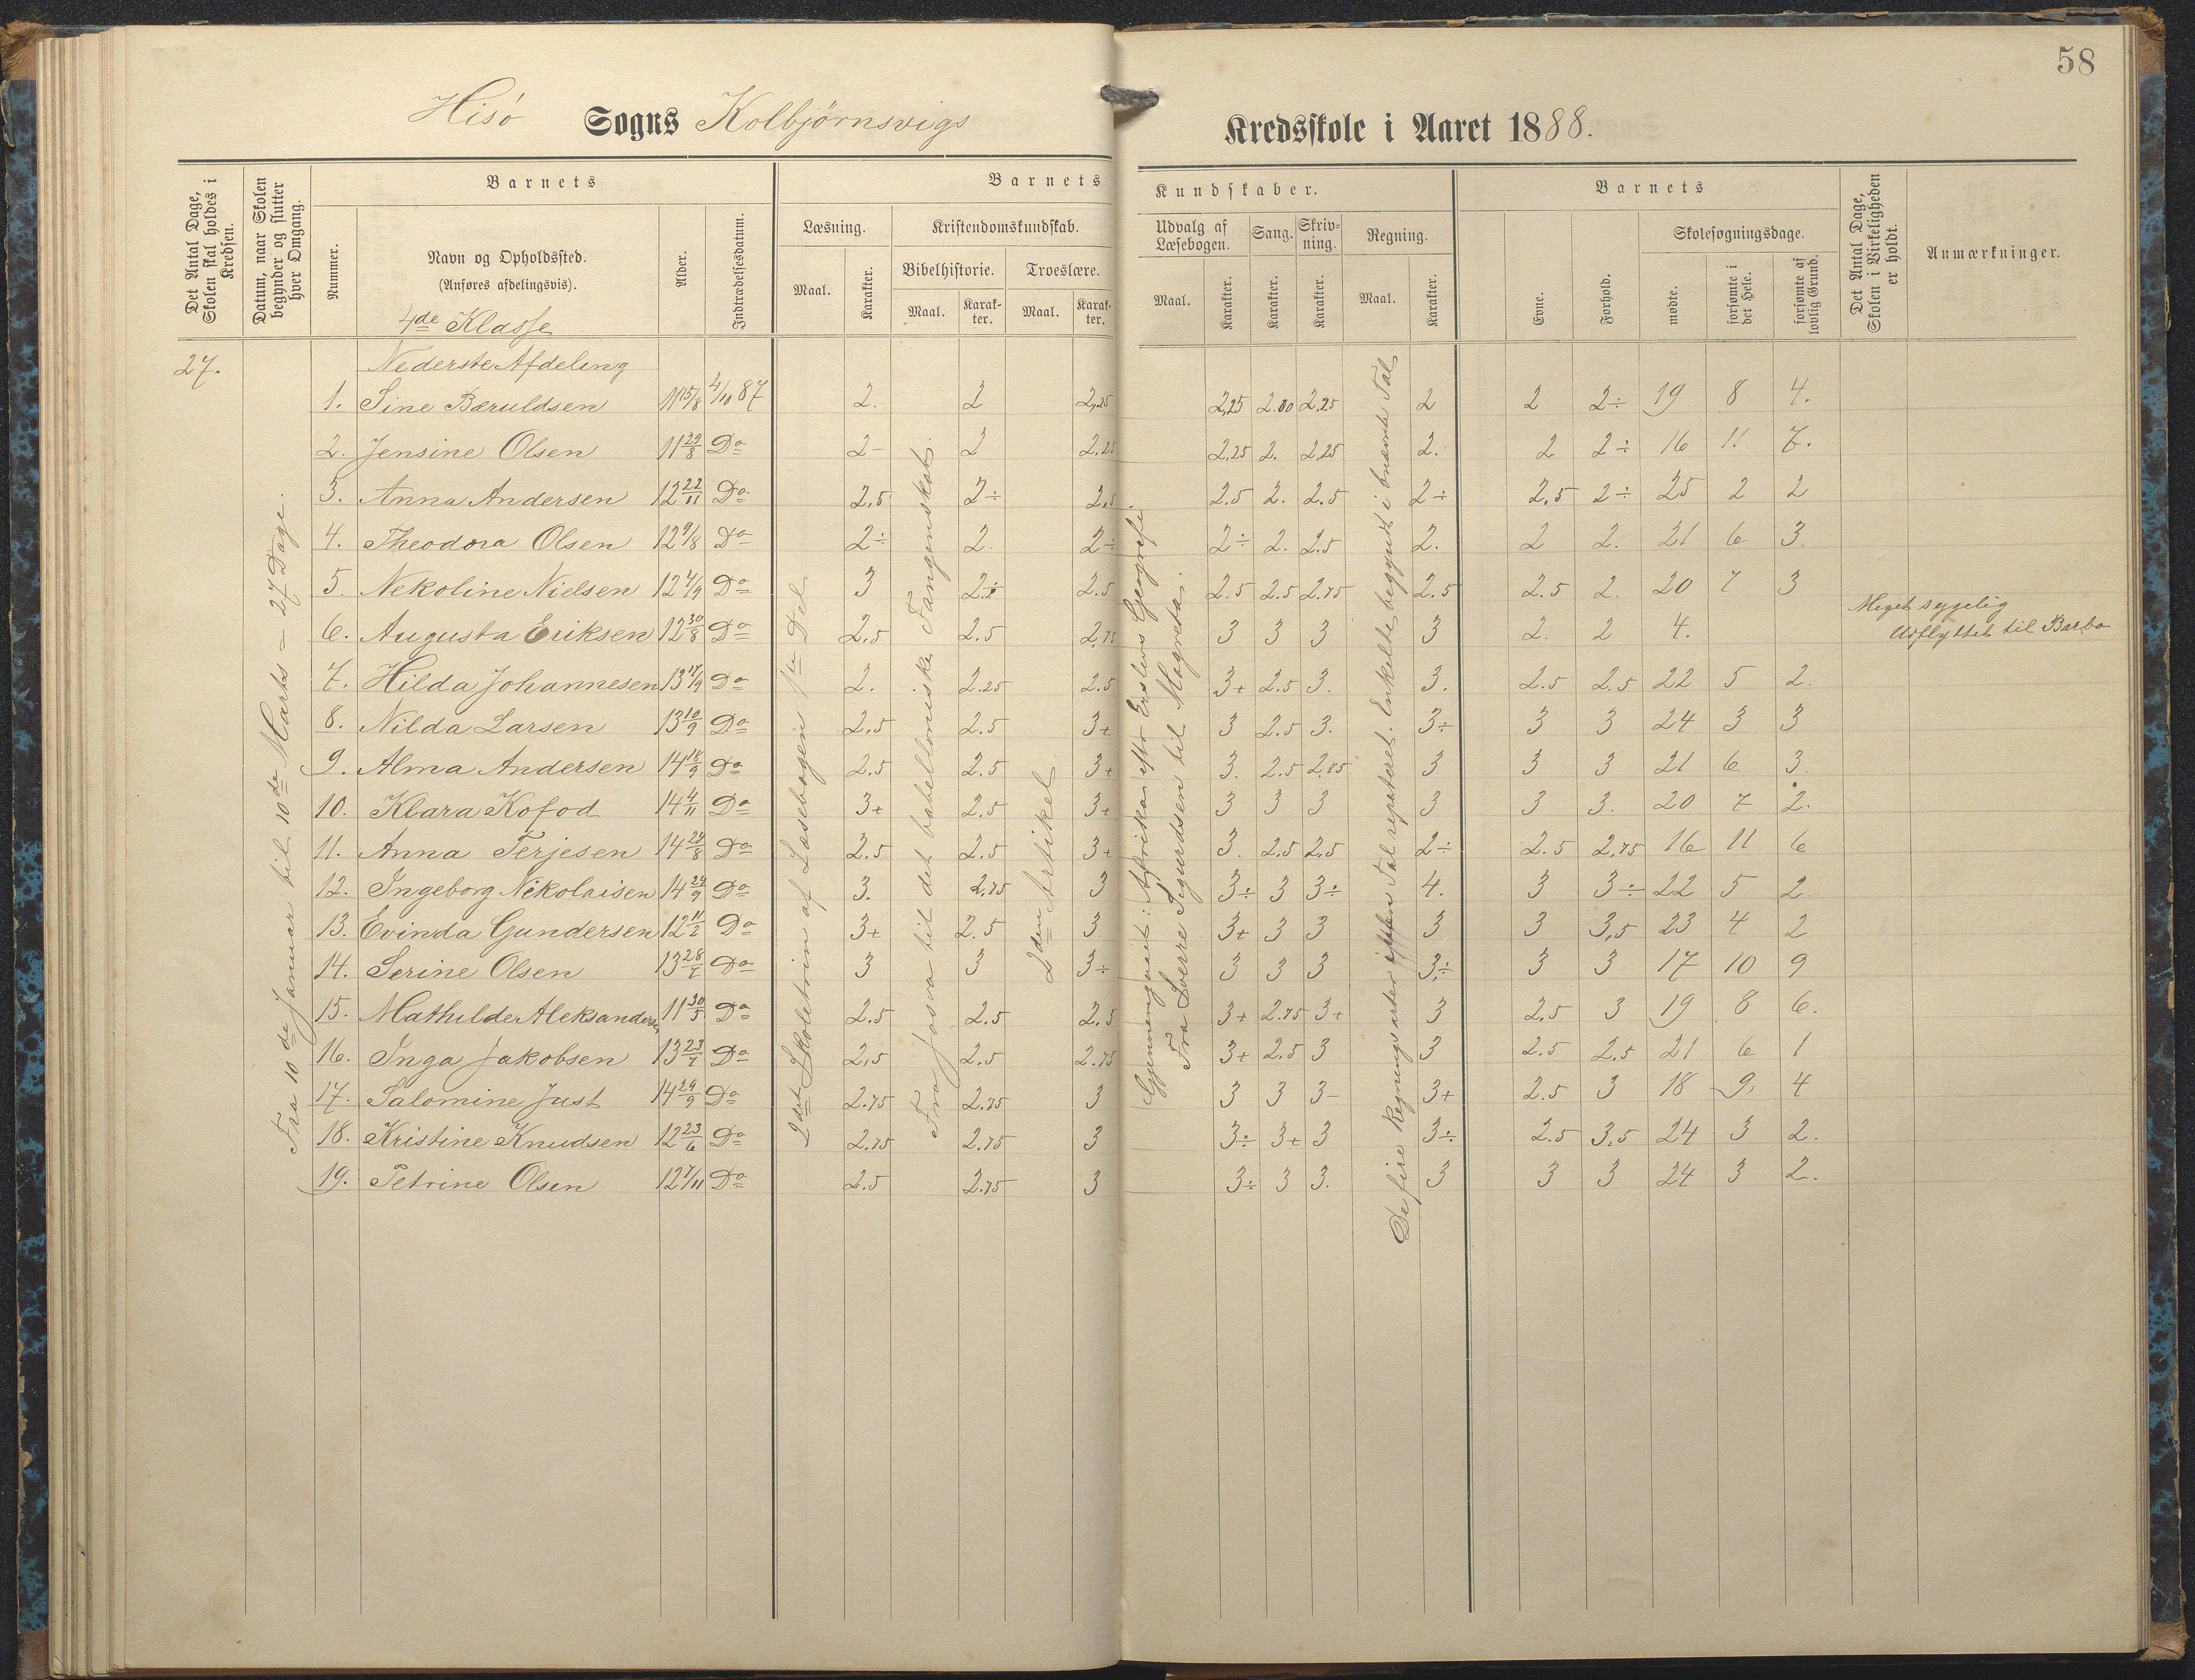 58
Hisø Sogns Kolbjørnsvigs Kredsskole i Aaret 1888.
Det Antal Dage, Skolen skal holdes i Kredsen.
Datum, naar Skolen begynder og slutter hver Omgang.
Barnets
Nummer.
Navn og Opholdssted.
(Anføres afdelingsvis).
Alder.
Indtrædelsesdatum.
Barnets Kundskaber.
Læsning.
Maal. Karakter.
Kristendomskundskab.
Bibelhistorie. Troeslære.
Maal. Karakter. Maal. Karakter.
Udvalg af Læsebogen. Sang. Skrivning. Regning.
Maal. Karakter. Karakter. Karakter. Maal. Karakter.
Barnets
Evne. Forhold.
Skolesøgningsdage.
mødte. forsømte i det Hele. forsømte af lovlig Grund.
Det Antal Dage, Skolen i Virkeligheden er holdt.
Anmærkninger.
4de Klasse
27. Nederste Afdeling
Fra 10de Januar til 10de Marts = 27 Dage.
2det Skoletrin af Læsebogen 1te Del
Fra Josva til det babelloniske Fangenskab.
2den Artikel
Gjennemgaaet: Afrika efter Erslevs Geografi.
Fra Sverre Sigurdsen til Magreta.
De fire Regningsarter Tal repeteret. Enkelte begyndt i brudne Tal
1. Sine Bæruldsen 11 15/8 4/10 87 2. 2 2,25 2,25 2.00 2,25 2 2 2÷ 19 8 4.
2. Jensine Olsen 11 29/8 Do 2- 2 2.25 2,25 2. 2,25 2. 2 2÷ 16 11 7.
3. Anna Andersen 12 22/11 Do 2,5 2÷ 2,5 2.5 2. 2.5 2÷ 2,5 2÷ 25 2 2
4. Theodora Olsen 12 9/8 Do 2÷ 2. 2÷ 2÷ 2. 2.5 2. 2 2. 21 6 3.
5. Nekoline Nielsen 12 4/9 Do 3 2÷ 2.5 2.5 2.5 2.75 2.5 2.5 2. 20 7 3
6. Augusta Eriksen 12 30/8 Do 2,5 2.5 2,75 3 3 3 3 2. 2 4. Meget sygelig
Udflyttet til Barbo
7. Hilda Johannesen 13 17/9 Do 2. 2.25 2.5 3+ 2.5 3. 3. 2.5 2.5 22 5 2.
8. Nilda Larsen 13 10/9 Do 2,5 2.5 3+ 3 2.5 3. 3÷ 3 3 24 3 3
9. Alma Andersen 14 18/9 Do 2.5 2.5 3+ 3. 2.5 2.75 3 3 3 21 6 3.
10. Klara Kofod 14 4/11 Do 3+ 2.5 3+ 3 3 3 3 3 3. 20 7 2.
11. Anna Terjesen 14 24/8 Do 2.5 2.5 3+ 3. 2.5 2,5 2÷ 2.5 2,75 16 11 6
12. Ingeborg Nikolaisen 14 24/9 Do 3. 2,75 3 3÷ 3 3÷ 4. 3 3÷ 22 5 2.
13. Evinda Gundersen 12 11/2 Do 3+ 2.5 3 3+ 3 3 3 3 3,5 23 4 2
14. Serine Olsen 13 28/7 Do 3 3 3÷ 3 3 3 3÷ 3 3 17 10 9
15. Mathilde Aleksandersen 11 30/5 Do 2.5 2.5 2.5 3+ 2.75 3+ 3 2,5 3 19 8 6.
16. Inga Jakobsen 13 23/7 Do 2,5 2.5 2.75 3+ 2.5 3 3 2.5 2.5 21 6 1
17. Salomine Just 14 29/9 Do 2.75 2.75 3 3 3 3- 3+ 2.5 3 18 9 4
18. Kristine Knudsen 12 23/6 Do 2.75 2.75 3 3÷ 3+ 3 3÷ 2.5 3,5 24 3 2.
19. Petrine Olsen 12 7/11 Do 2.5 2.75 3 3÷ 3 3. 3 3 3 24 3 2.